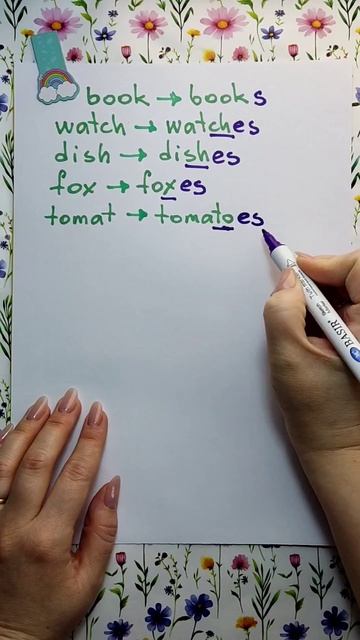 book → books
watch → watches
dish → dishes
fox → foxes
tomat → tomatoes
BASIR